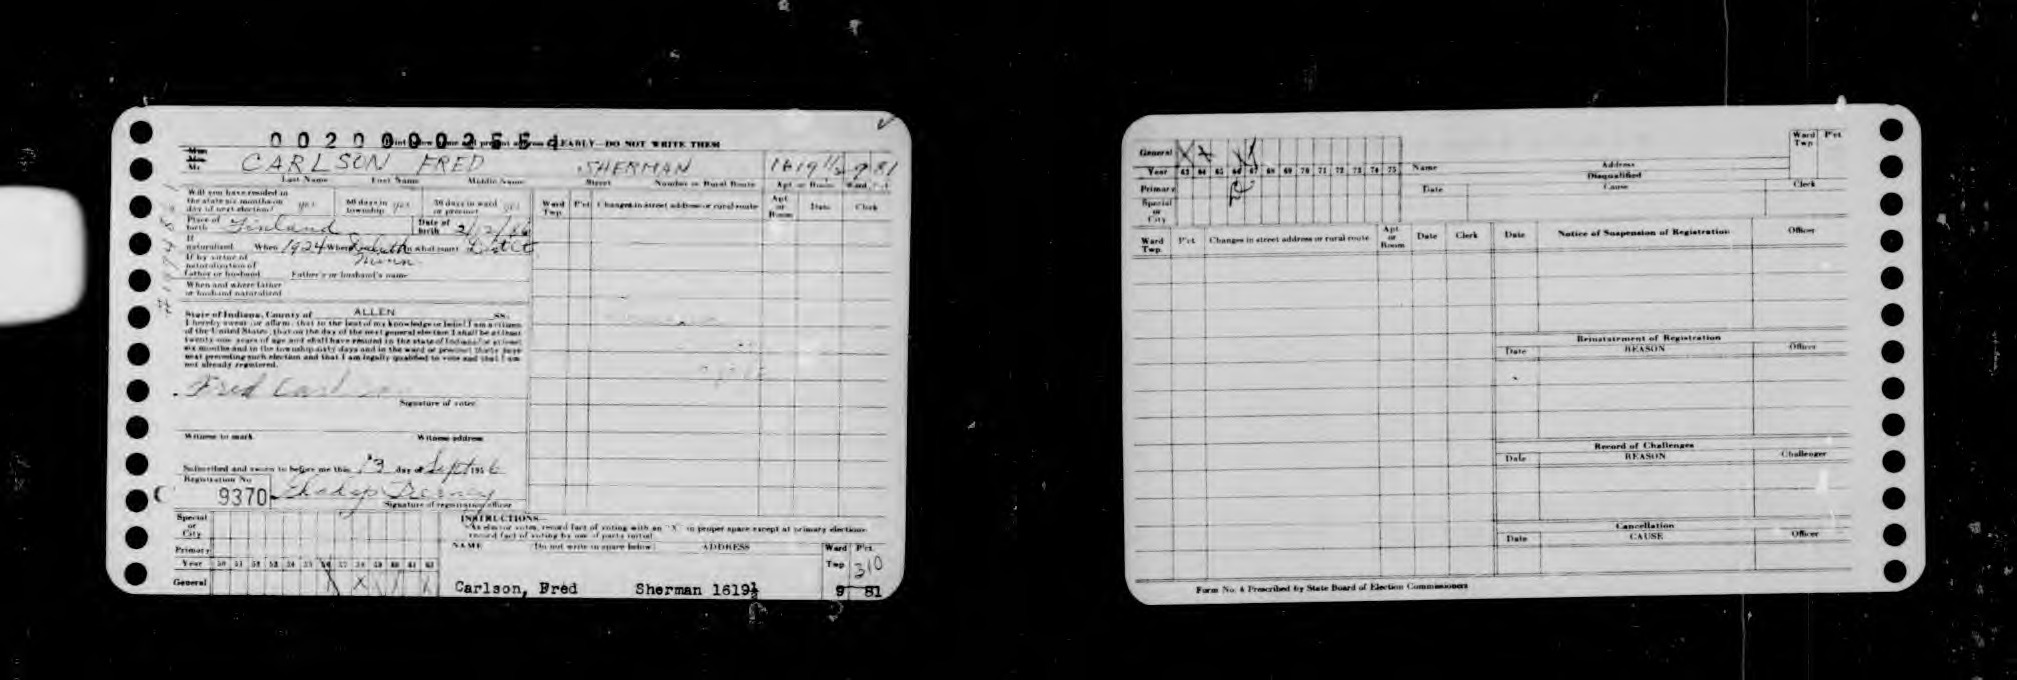 00200002554
Print your name and present address CLEARLY—DO NOT WRITE THEM
Mr. CARLSON FRED SHERMAN 1619 1/2 9 81
Last Name First Name Middle Name Street Number or Rural Route Apt or Room Ward Pct
Will you have resided in the state six months on day of next election? yes 60 days in township yes 30 days in ward or precinct yes
Ward Twp. P'ct Changes in street address or rural route Apt or Room Date Clerk
Place of birth Finland Date of birth 2/2/86
If naturalized When 1924 Where Duluth Minn In what court Dist Ct
If by virtue of naturalization of father or husband Father's or husband's name
When and where father or husband naturalized
State of Indiana, County of ALLEN SS.
I hereby swear or affirm, that to the best of my knowledge or belief I am a citizen
of the United States, that on the day of the next general election I shall be at least
twenty-one years of age and shall have resided in the state of Indiana for at least
six months and in the township sixty days and in the ward or precinct thirty days
next preceding such election and that I am legally qualified to vote and that I am
not already registered.
Fred Carlson
Signature of voter
Witness to mark Witness address
Subscribed and sworn to before me this 13 day of Sept 1956
Registration No
9370
Signature of registration officer
Special or City
Primary
Year 50 51 52 53 54 55 56 57 58 59 60 61 62
General X X
INSTRUCTIONS
As elector votes, record fact of voting with an "X" in proper space except at primary elections
record fact of voting by use of party initial
NAME (Do not write in space below) ADDRESS Ward Twp P'ct
310
Carlson, Fred Sherman 1619½ 9 81
General X X
Year 63 64 65 66 67 68 69 70 71 72 73 74 75
Primary
Special or City
Name Address Ward Twp P'ct
Disqualified
Date Cause Clerk
Ward Twp. P'ct Changes in street address or rural route Apt or Room Date Clerk
Date Notice of Suspension of Registration Officer
Reinstatement of Registration
Date REASON Officer
Record of Challenges
Date REASON Challenger
Cancellation
Date CAUSE Officer
Form No. 4 Prescribed by State Board of Election Commissioners